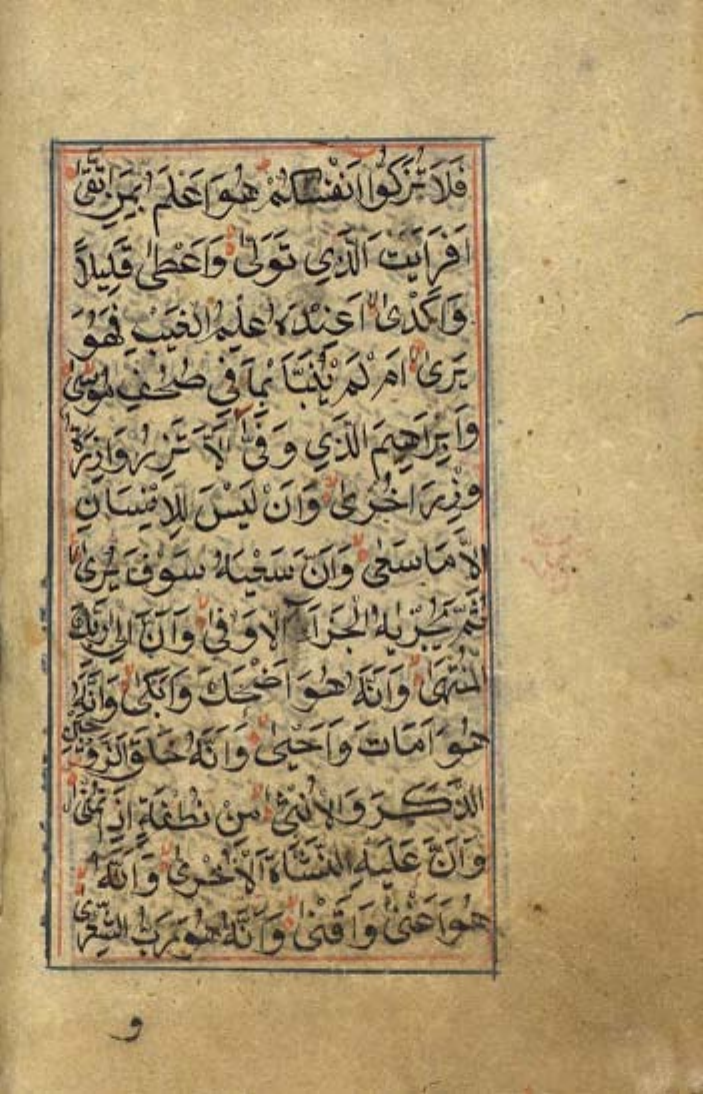 فَلَا تُزَكُّوا اَنْفُسَكُمْ هُوَ اَعْلَمُ بِمَنِ اتَّقٰى
اَفَرَاَيْتَ الَّذِي تَوَلّٰى وَاَعْطٰى قَلِيلًا
وَاَكْدٰى اَعِنْدَهُ عِلْمُ الْغَيْبِ فَهُوَ
يَرٰى اَمْ لَمْ يُنَبَّاْ بِمَا فِي صُحُفِ مُوسٰى
وَاِبْرٰهِيمَ الَّذِي وَفّٰى اَلَّا تَزِرُ وَازِرَةٌ
وِزْرَ اُخْرٰى وَاَنْ لَيْسَ لِلْاِنْسَانِ
اِلَّا مَا سَعٰى وَاَنَّ سَعْيَهُ سَوْفَ يُرٰى
ثُمَّ يُجْزٰيهُ الْجَزَآءَ الْاَوْفٰى وَاَنَّ اِلٰى رَبِّكَ
الْمُنْتَهٰى وَاَنَّهُ هُوَ اَضْحَكَ وَاَبْكٰى وَاَنَّهُ
هُوَ اَمَاتَ وَاَحْيٰى وَاَنَّهُ خَلَقَ الزَّوْجَيْنِ
الذَّكَرَ وَالْاُنْثٰى مِنْ نُطْفَةٍ اِذَا تُمْنٰى
وَاَنَّ عَلَيْهِ النَّشْاَةَ الْاُخْرٰى وَاَنَّهُ
هُوَ اَغْنٰى وَاَقْنٰى وَاَنَّهُ هُوَ رَبُّ الشِّعْرٰى
و